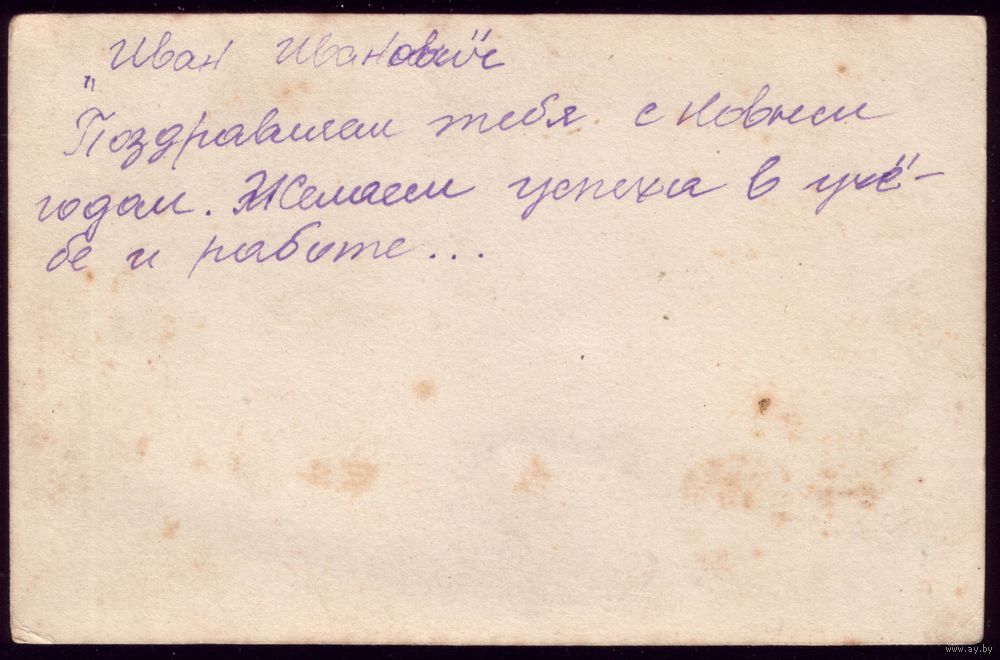 "Иван Иванович"
Поздравляем тебя с новым
годом. Желаем успеха в учё-
бе и работе...
www.ay.by